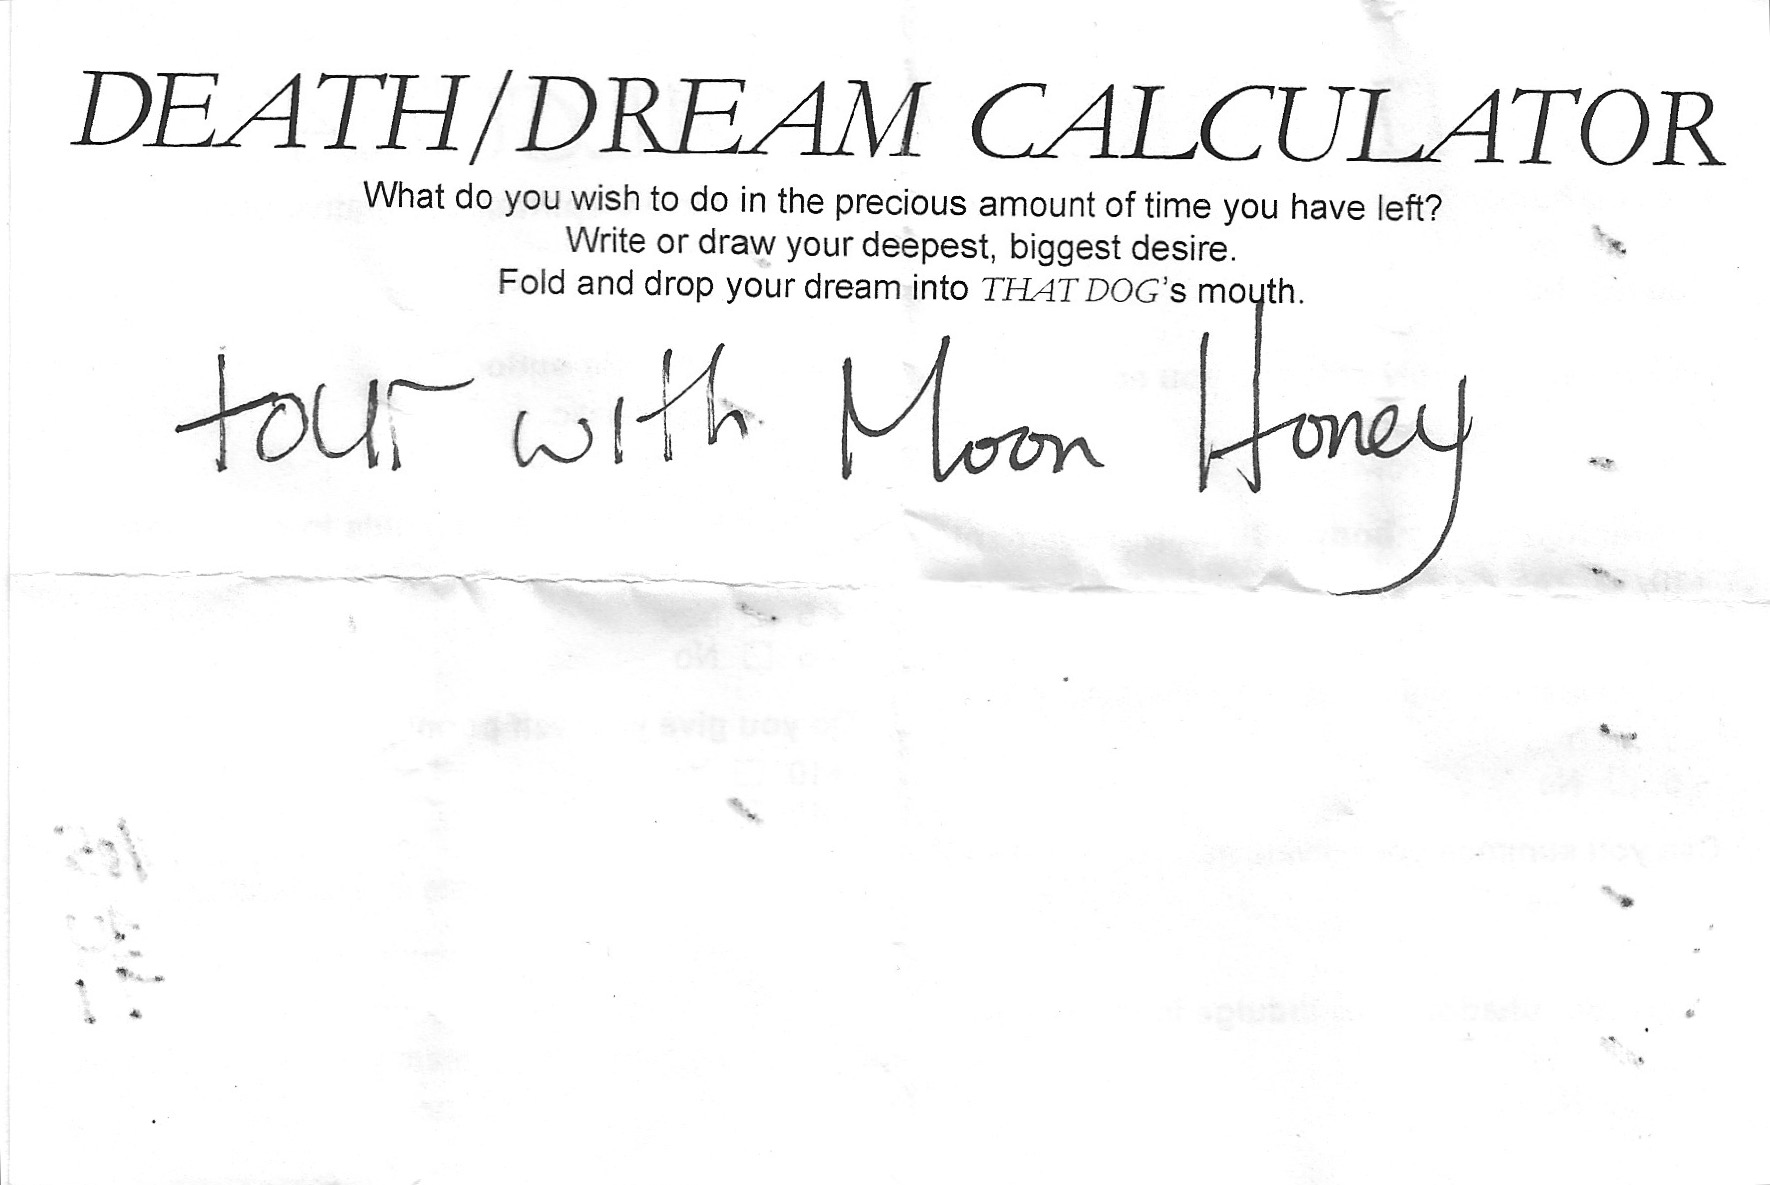 DEATH/DREAM CALCULATOR
What do you wish to do in the precious amount of time you have left?
Write or draw your deepest, biggest desire.
Fold and drop your dream into THAT DOG's mouth.
tour with Moon Honey